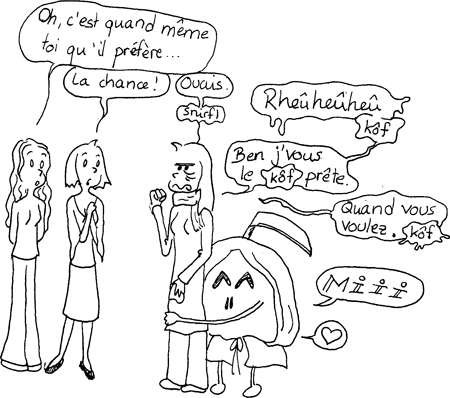 Oh, c'est quand même
toi qu'il préfère...
La chance!
Ouais.
snurf!
Rheûheûheû
kôf
Ben j'vous
le kôf prête.
Quand vous
voulez. kôf
Miii